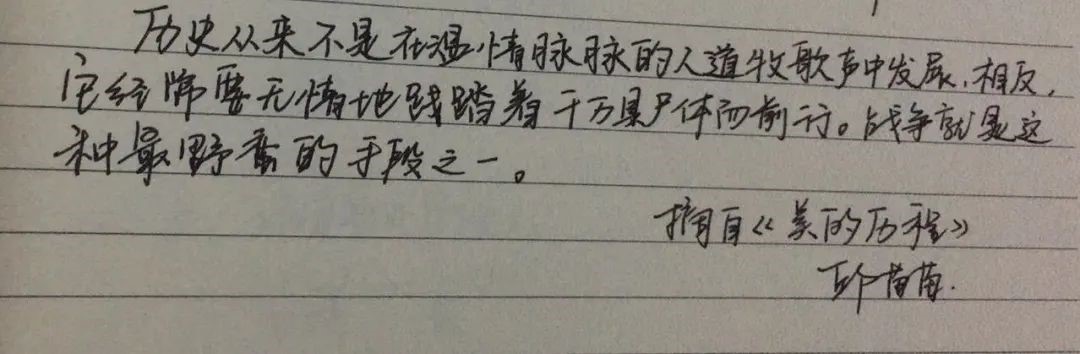 历史从来不是在温情脉脉的人道牧歌声中发展,相反,
它经常要无情地践踏着千万具尸体而前行。战争就是这
种最野蛮的手段之一。
摘自《美的历程》
邱苗苗.